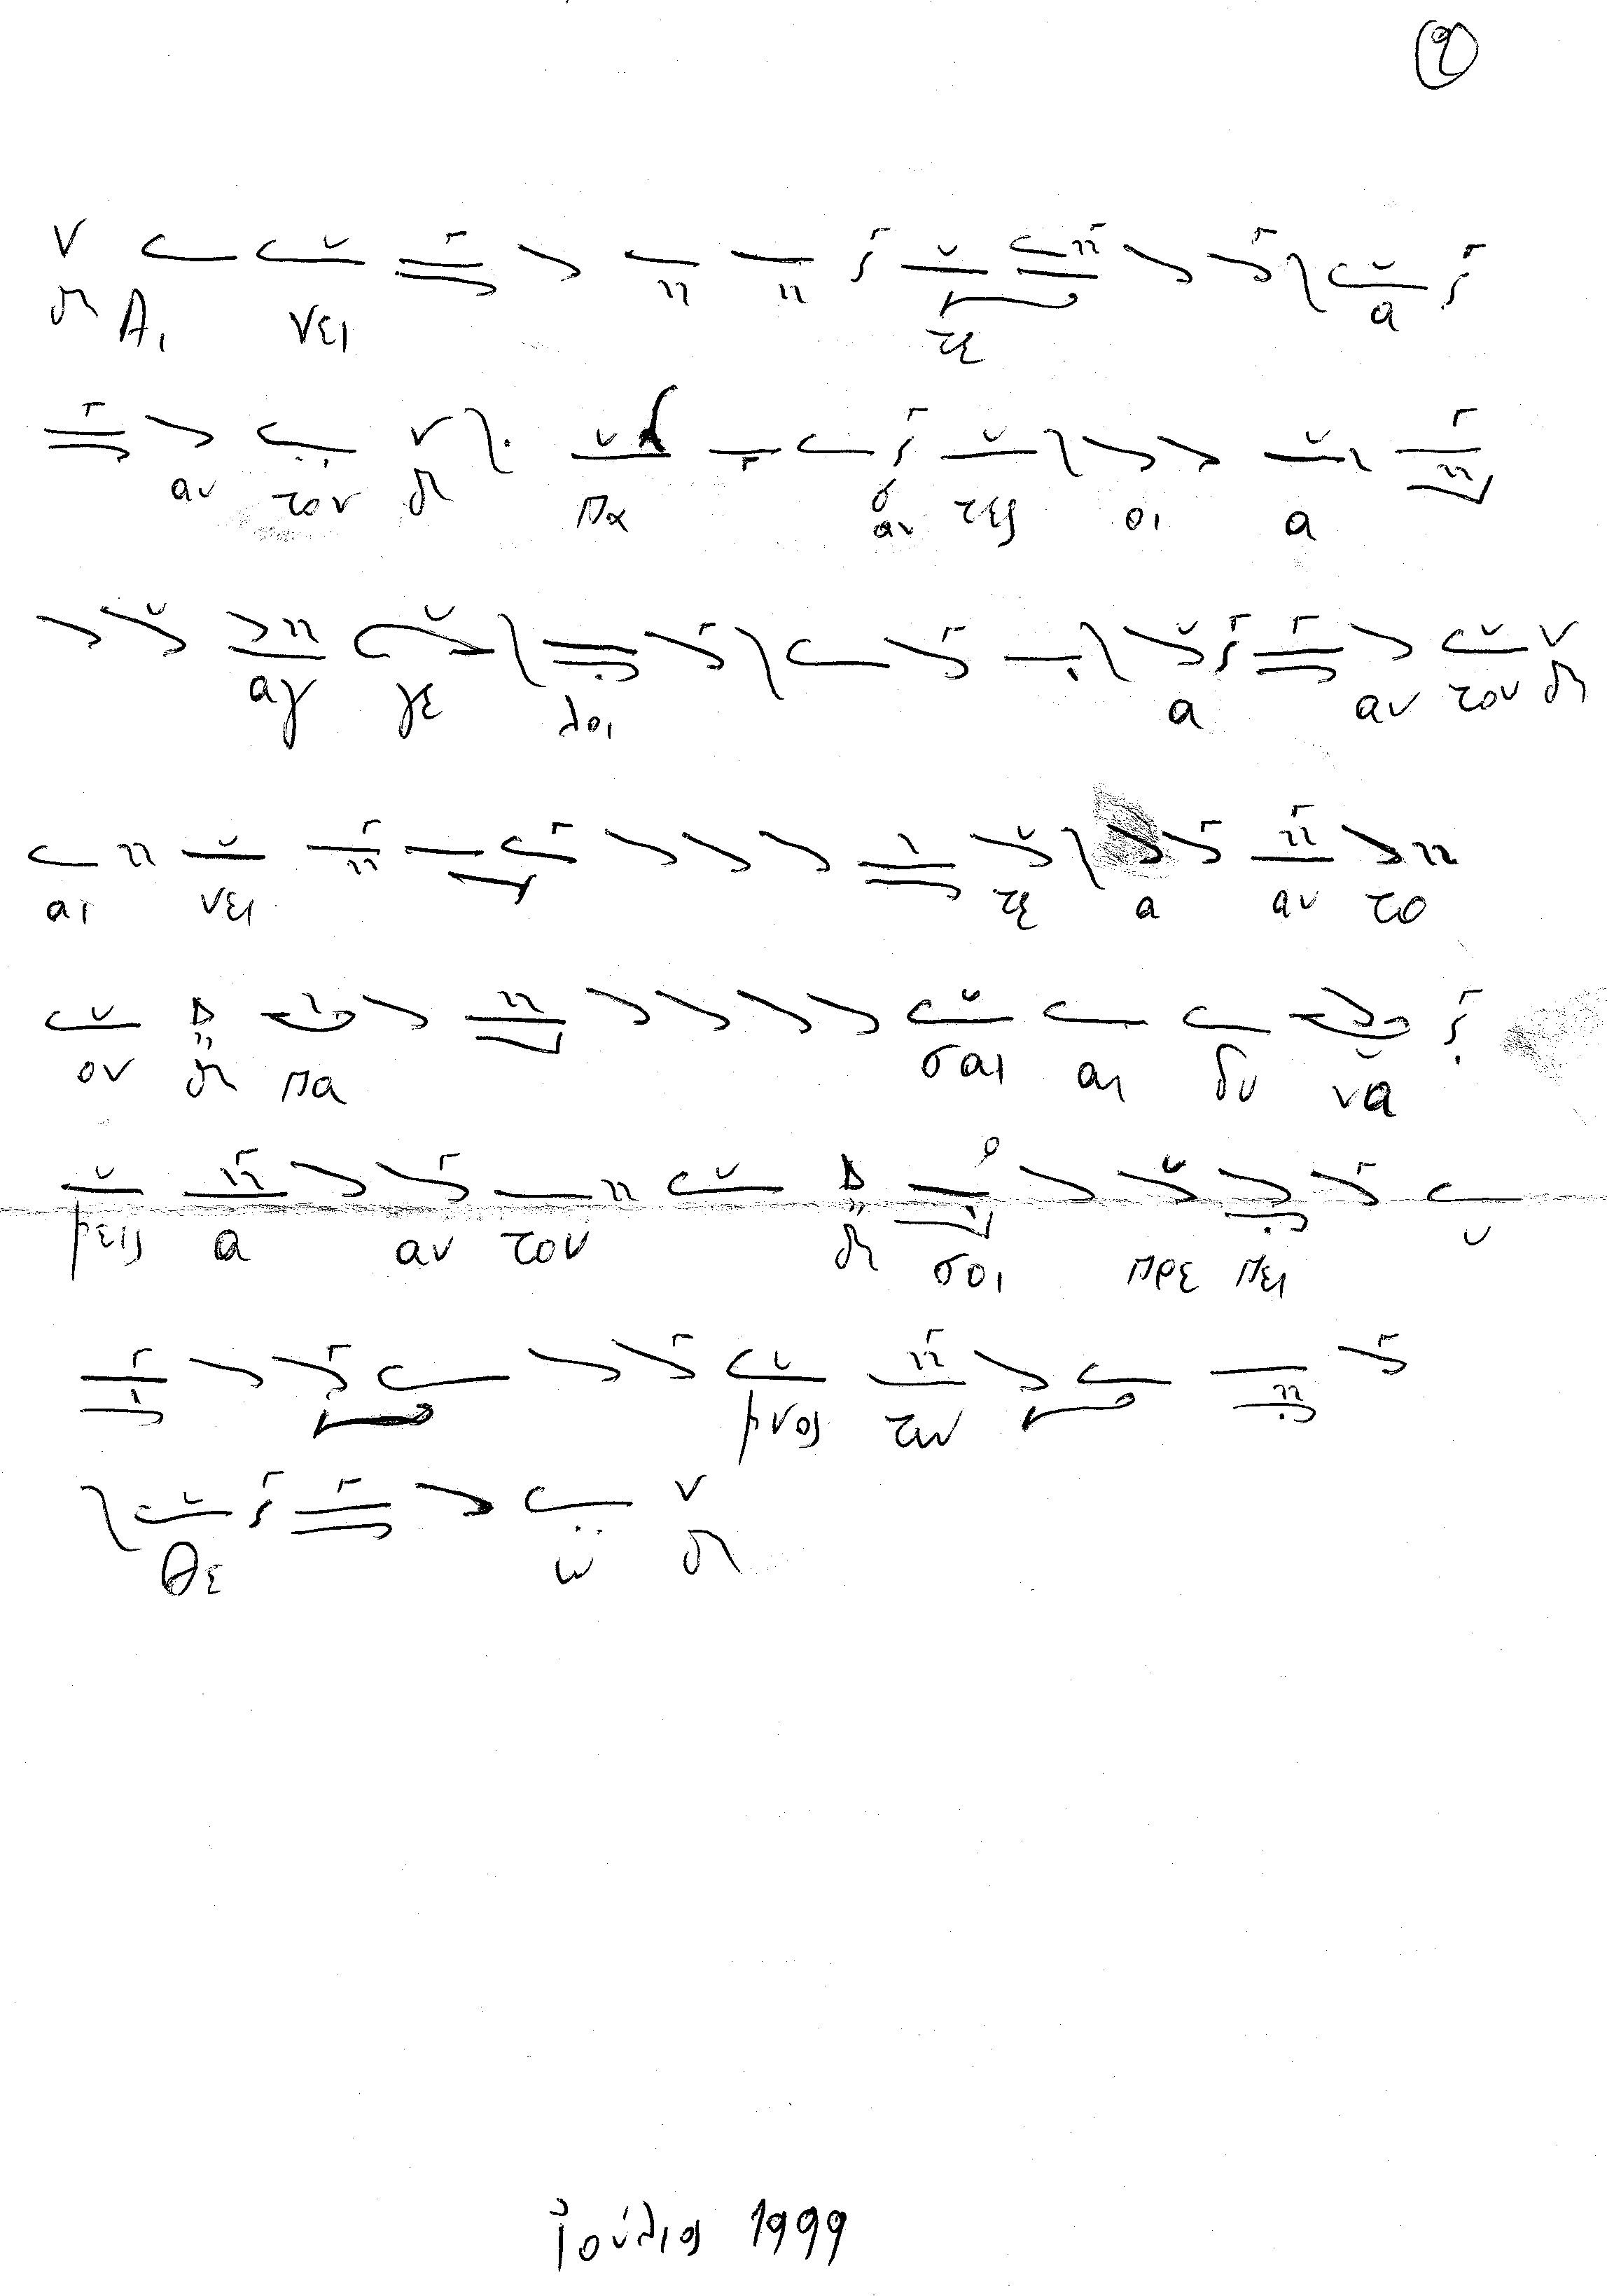 9
δι Αι νει τε α
αν τον δι πα σ αν τες οι α
αγ γε λοι α αν τον δι
αι νει τε α αν το
ον δι πα σαι αι δυ να
μεις α αν τον δι σοι πρε πει υ
μνος τω
θε ω δι
Ἰούλιος 1999